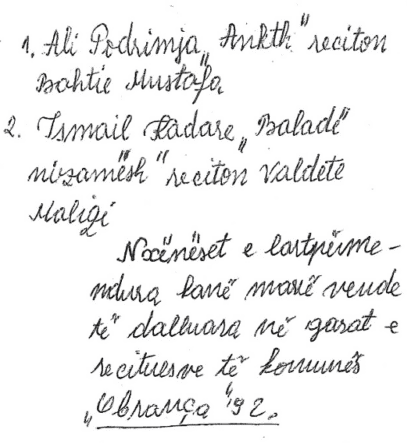 1. Ali Podrimja „Ankth" reciton
Bahtie Mustafa
2. Ismail Kadare „Baladë
nizamësh" reciton Valdete
Maliqi
Nxënëset e lartpërme-
ndura kanë marrë vende
të dalluara në garat e
recituesve të komunës
„Obrança '92.